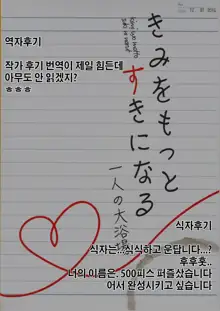 きみをもっと
すきになる
一人の大浴場
역자후기
작가 후기 번역이 제일 힘든데
아무도 안 읽겠지?
ㅎㅎㅎ
식자후기
식자는...식식하고 운답니다...?
후후훗..
너의 이름은 500피스 퍼즐샀습니다
어서 완성시키고 싶습니다